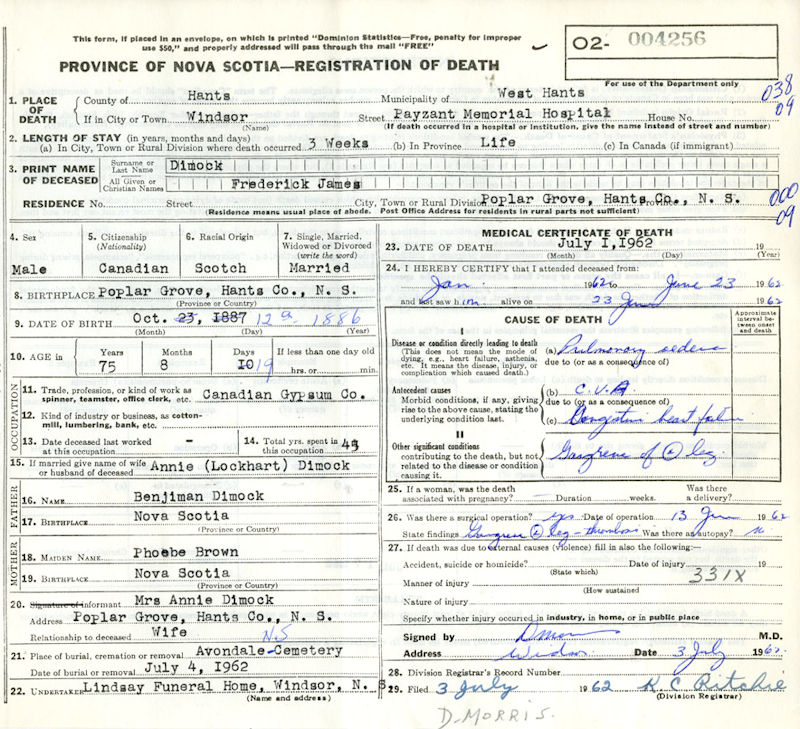 This form, if placed in an envelope, on which is printed "Dominion Statistics—Free, penalty for improper
use $50," and properly addressed will pass through the mail "FREE"
02- 004256
PROVINCE OF NOVA SCOTIA—REGISTRATION OF DEATH
For use of the Department only
038
09
1. PLACE OF DEATH
County of Hants Municipality of West Hants
If in City or Town Windsor Street Payzant Memorial Hospital House No.
(Name) (If death occurred in a hospital or institution, give the name instead of street and number)
2. LENGTH OF STAY (in years, months and days)
(a) In City, Town or Rural Division where death occurred 3 Weeks (b) In Province Life (c) In Canada (if immigrant)
3. PRINT NAME OF DECEASED
Surname or Last Name Dimock
All Given or Christian Names Frederick James
RESIDENCE No. Street City, Town or Rural Division Poplar Grove, Hants Co., N. S.
(Residence means usual place of abode. Post Office Address for residents in rural parts not sufficient)
000
09
4. Sex
Male
5. Citizenship (Nationality)
Canadian
6. Racial Origin
Scotch
7. Single, Married, Widowed or Divorced (write the word)
Married
8. BIRTHPLACE Poplar Grove, Hants Co., N. S.
(Province or Country)
9. DATE OF BIRTH Oct. 23, 1887 12 1886
(Month) (Day) (Year)
10. AGE in Years Months Days If less than one day old
75 8 10 19 hrs. or min.
OCCUPATION
11. Trade, profession, or kind of work as spinner, teamster, office clerk, etc. Canadian Gypsum Co.
12. Kind of industry or business, as cotton-mill, lumbering, bank, etc.
13. Date deceased last worked at this occupation -
14. Total yrs. spent in this occupation 45
15. If married give name of wife or husband of deceased Annie (Lockhart) Dimock
FATHER
16. NAME Benjiman Dimock
17. BIRTHPLACE Nova Scotia
(Province or Country)
MOTHER
18. MAIDEN NAME Phoebe Brown
19. BIRTHPLACE Nova Scotia
(Province or Country)
20. Signature of informant Mrs Annie Dimock
Address Poplar Grove, Hants Co., N. S.
Relationship to deceased Wife
N.S
21. Place of burial, cremation or removal Avondale Cemetery
Date of burial or removal July 4, 1962
22. UNDERTAKER Lindsay Funeral Home, Windsor, N. S.
(Name and address)
MEDICAL CERTIFICATE OF DEATH
23. DATE OF DEATH July 1,1962 19
(Month) (Day) (Year)
24. I HEREBY CERTIFY that I attended deceased from:
Jan. 1962 to June 23 1962
and last saw him alive on 23 June 1962
CAUSE OF DEATH
Approximate interval between onset and death
I
Disease or condition directly leading to death
(This does not mean the mode of dying, e.g., heart failure, asthenia, etc. It means the disease, injury, or complication which caused death.)
(a) Pulmonary edema
due to (or as a consequence of)
Antecedent causes
Morbid conditions, if any, giving rise to the above cause, stating the underlying condition last.
(b) C.V.A.
due to (or as a consequence of)
(c) Congestive heart failure
II
Other significant conditions
contributing to the death, but not related to the disease or condition causing it.
Gangrene of leg.
25. If a woman, was the death associated with pregnancy? Duration weeks. Was there a delivery?
26. Was there a surgical operation? yes Date of operation 13 Jun 1962
State findings Gangrene leg - thrombosis Was there an autopsy? no
27. If death was due to external causes (violence) fill in also the following:—
Accident, suicide or homicide? Date of injury 19
(State which)
331X
Manner of injury
(How sustained
Nature of injury
Specify whether injury occurred in industry, in home, or in public place
Signed by M.D.
Address Windsor Date 3 July 1962
28. Division Registrar's Record Number
29. Filed 3 July 1962 R C Ritchie
(Division Registrar)
D. MORRIS.